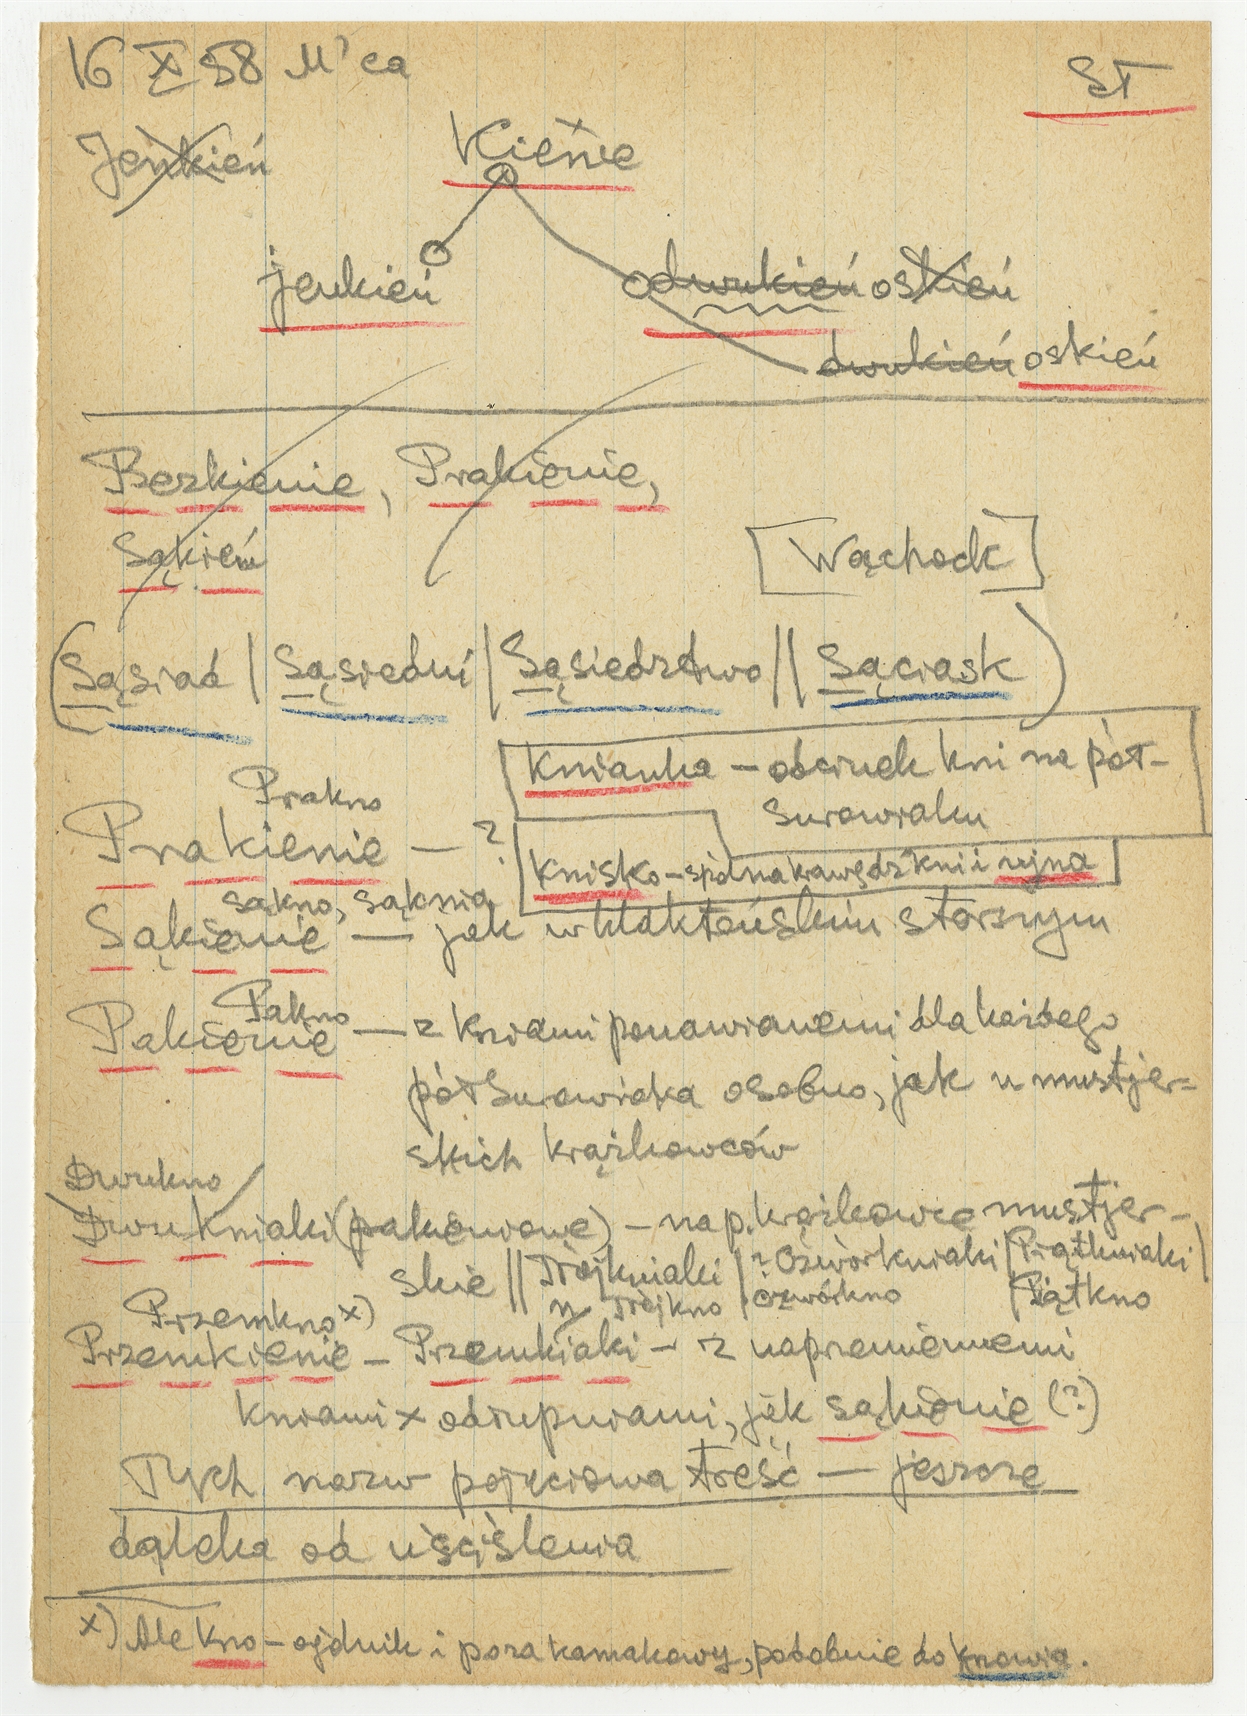 16 X 58 M'ca
ST
Jeńkień
Kienie
jenkień
odwukień oskień
dwukień oskień
Bezkienie, Prakienie,
Sąkień
[Wąchock]
(Sąsiad | Sąsiedni | Sąsiedztwo || Sąciask)
Knianka – odcinek kni na pół-
surowiaku
Prakno
Prakienie — ?
Knisko – spód na krawędź kni i ujna
sąkno, sąknia
Sąkienie — jak w klaktońskim starszym
Pakno
Pakienie — z kniami ponawianemi dla każdego
półsurowiaka osobno, jak u mustjer-
skich krążkowców
Dwukno
Dwukniaki (pakieniowe) – np. krążkowce mustjer-
skie || Trójkniaki | ? Czwórkniaki | Piątkniaki |
Trójkno czwórkno Piątkno
Przemkno x)
Przemkienie – Przemkiaki – z naprzemiennemi
kniami x odłupniami, jak sąkienie (?)
Tych nazw pojęciowa treść — jeszcze
daleka od uściślenia
x) Ale kno – ojdnik i poza kamakowy, podobnie do knowia.